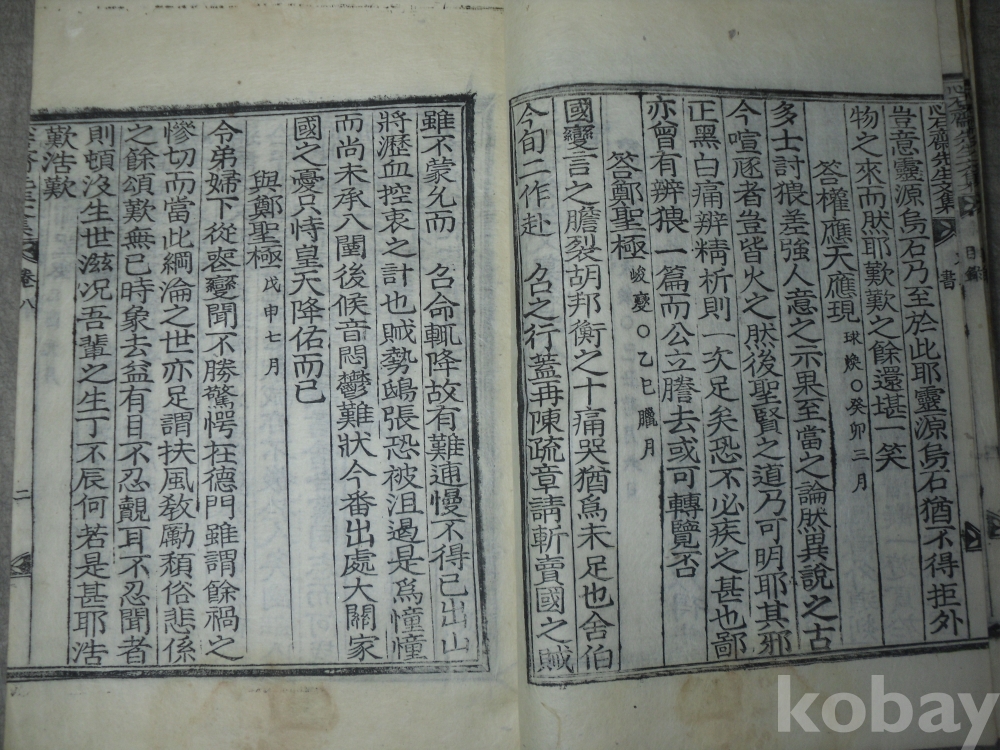 心石齋先生文集
目錄
書
豈意靈源烏石乃至於此耶靈源烏石猶不得拒外
物之來而肰耶歎歎之餘還堪一笑
答權應天應現 球煥○癸卯三月
多士討狼差強人意之示果至當之論然異說之古
今喧豗者豈皆火之然後聖賢之道乃可明耶其邪
正黑白痛辨精析則一次足矣恐不必疾之甚也鄙
亦曾有辨猿一篇而公立謄去或可轉覽否
答鄭聖極 崚變○乙巳臘月
國變言之膽裂胡邦衡之十痛哭猶爲未足也舍伯
今旬二作赴 召之行蓋再陳疏章請斬賣國之賊
雖不蒙允而 召命輒降故有難逋慢不得已出山
將瀝血控衷之計也賊勢鴟張恐被沮遏是爲憧憧
而尚未承入闉後候音悶鬱難狀今番出處大關家
國之憂只恃皇天降佑而已
與鄭聖極 戊申七月
令弟婦下從喪變聞不勝驚愕在德門雖謂餘禍之
慘切而當此綱淪之世亦足謂扶風敎勵頹俗悲係
之餘頌歎無已時象去益有目不忍覩耳不忍聞者
則頓沒生世滋况吾輩之生丁不辰何若是甚耶浩
歎浩歎
卷八
二
kobay